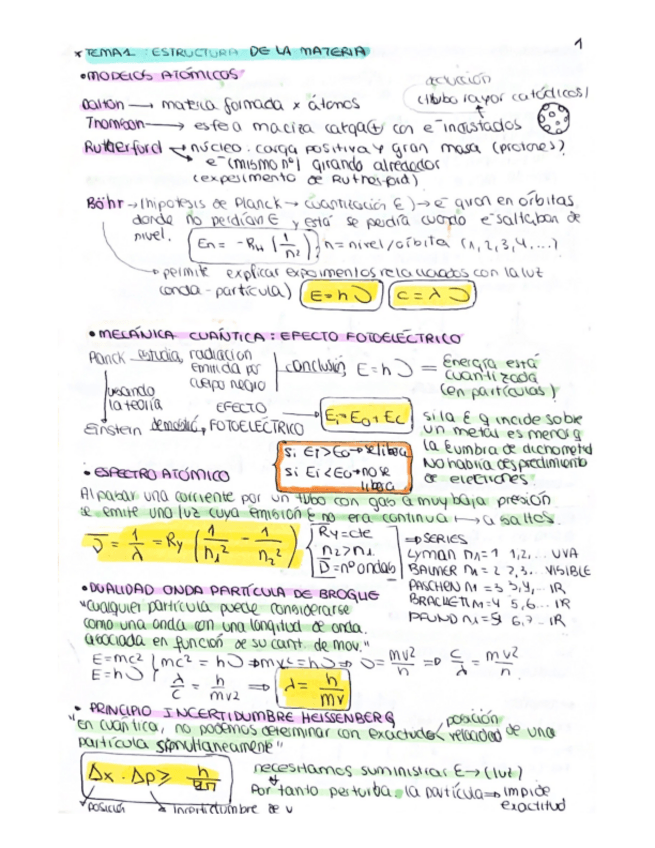 1
* TEMA 1 : ESTRUCTURA DE LA MATERIA
• MODELOS ATÓMICOS
Dalton → materia formada x átomos
(tubo rayos catódicos)
Thomson → esfera maciza carga(+) con e⁻ incrustados
Rutherford → núcleo: carga positiva y gran masa (protones)
e⁻ (mismo nº) girando alrededor
(experimento de Rutherford)
Böhr → (hipotesis de Planck → cuantización E) → e⁻ giran en órbitas
donde no perdían E y está se perdía cuando e⁻ saltaban de
nivel. En = -RH (1/n²) ; n = nivel/órbita (1, 2, 3, 4, ...)
permite explicar experimentos relacionados con la luz
(onda-partícula) E = h υ c = λ υ
• MECÁNICA CUÁNTICA : EFECTO FOTOELÉCTRICO
Planck estudia, radiación emitida por cuerpo negro conclusión, E = h υ = Energía está cuantizada (en partículas)
usando la teoría
Einstein demostró, EFECTO FOTOELÉCTRICO → Ei = Eo + Ec
si la E q incide sobre
un metal es menor q
la E umbra de dicho metal
No habría desprendimiento
de electrones.
si Ei > Eo → se libera
si Ei < Eo → no se libera
• ESPECTRO ATÓMICO
Al pasar una corriente por un tubo con gas a muy baja presión
se emite una luz cuya emisión E no era continua ↦ a saltos.
υ̅ = 1/λ = Ry (1/n1² - 1/n2²)
Ry = cte
n2 > n1
υ̅ = nº ondas
⇒ SERIES
Lyman n1 = 1 1, 2, ... UVA
BALMER n1 = 2 2, 3... VISIBLE
PASCHEN n1 = 3 3, 4, .. IR
BRACKETT n1 = 4 5, 6... IR
PFUND n1 = 5 6, 7.. IR
• DUALIDAD ONDA PARTÍCULA DE BROGLIE
"Cualquier partícula puede considerarse
como una onda con una longitud de onda
asociada en función de su cant. de mov."
E = mc²
E = h υ
mc² = h υ ⇒ mv² = h υ ⇒ υ = mv²/h ⇒ c/λ = mv²/h
λ/c = h/mv² ⇒ λ = h/mv
• PRINCIPIO INCERTIDUMBRE HEISSENBERG
"En cuántica, no podemos determinar con exactitud posición velocidad de una
partícula simultaneamente"
Δx · Δp ≥ h/2π
posición
incertidumbre de v
necesitamos suministrar E → (luz)
Por tanto perturba la partícula ⇒ impide exactitud